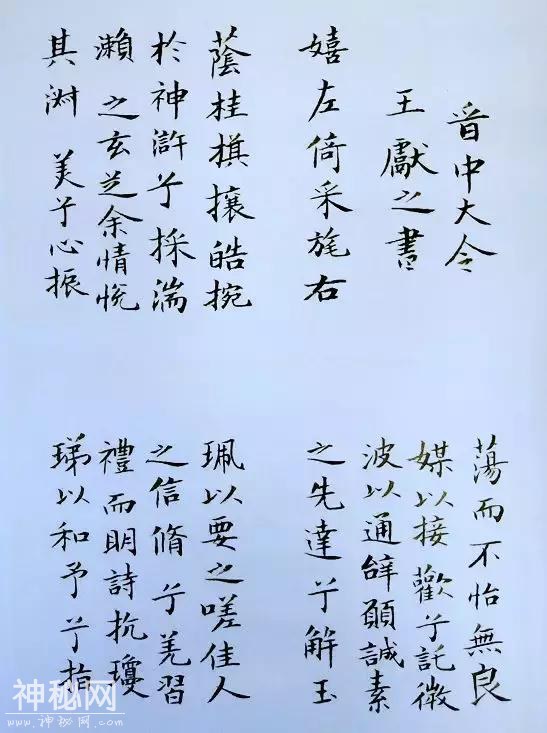 晉中大令
王獻之書
嬉左倚采旄右
蔭桂棋攘皓捥
於神滸兮採湍
瀨之玄芝余情悅
其淑美兮心振
蕩而不怡無良
媒以接歡兮託微
波以通辭願誠素
之先達兮解玉
珮以要之嗟佳人
之信脩兮羌習
禮而明詩抗瓊
珶以和予兮指
神秘网
www.神秘网.com